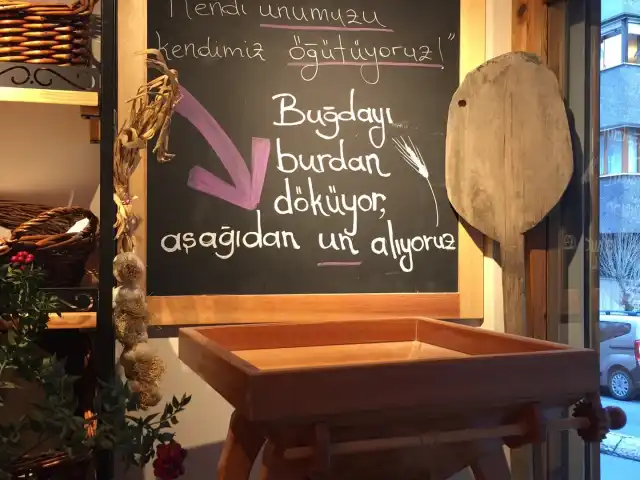 Kendi unumuzu
kendimiz öğütüyoruz!"
Buğdayı
burdan
döküyor,
aşağıdan un alıyoruz